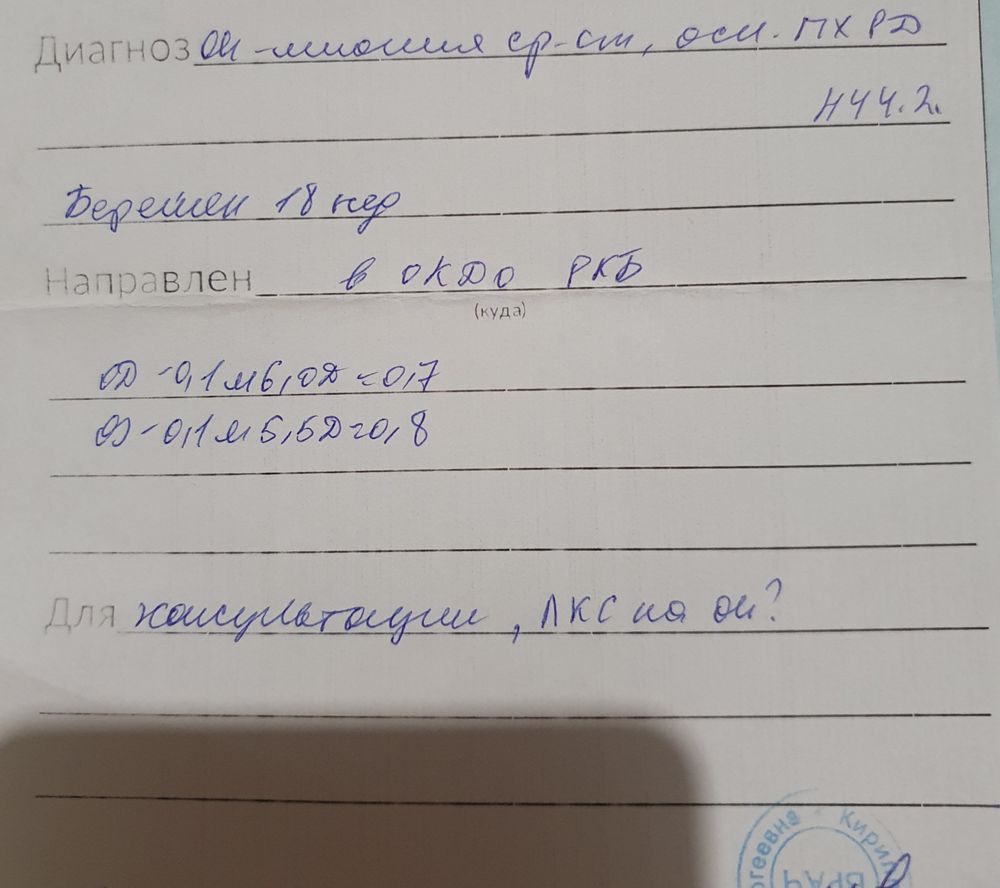 Диагноз Ои - миопия ср-ст, осл. ПХРД
H44.2.
Беремен 18 нед
Направлен в ОКДО РКБ
(куда)
OD - 0,1 м 6,0Д = 0,7
OS - 0,1 м 5,5Д = 0,8
Для консультации, ЛКС на ои?
ргеевна Кирил
ВРАЧ